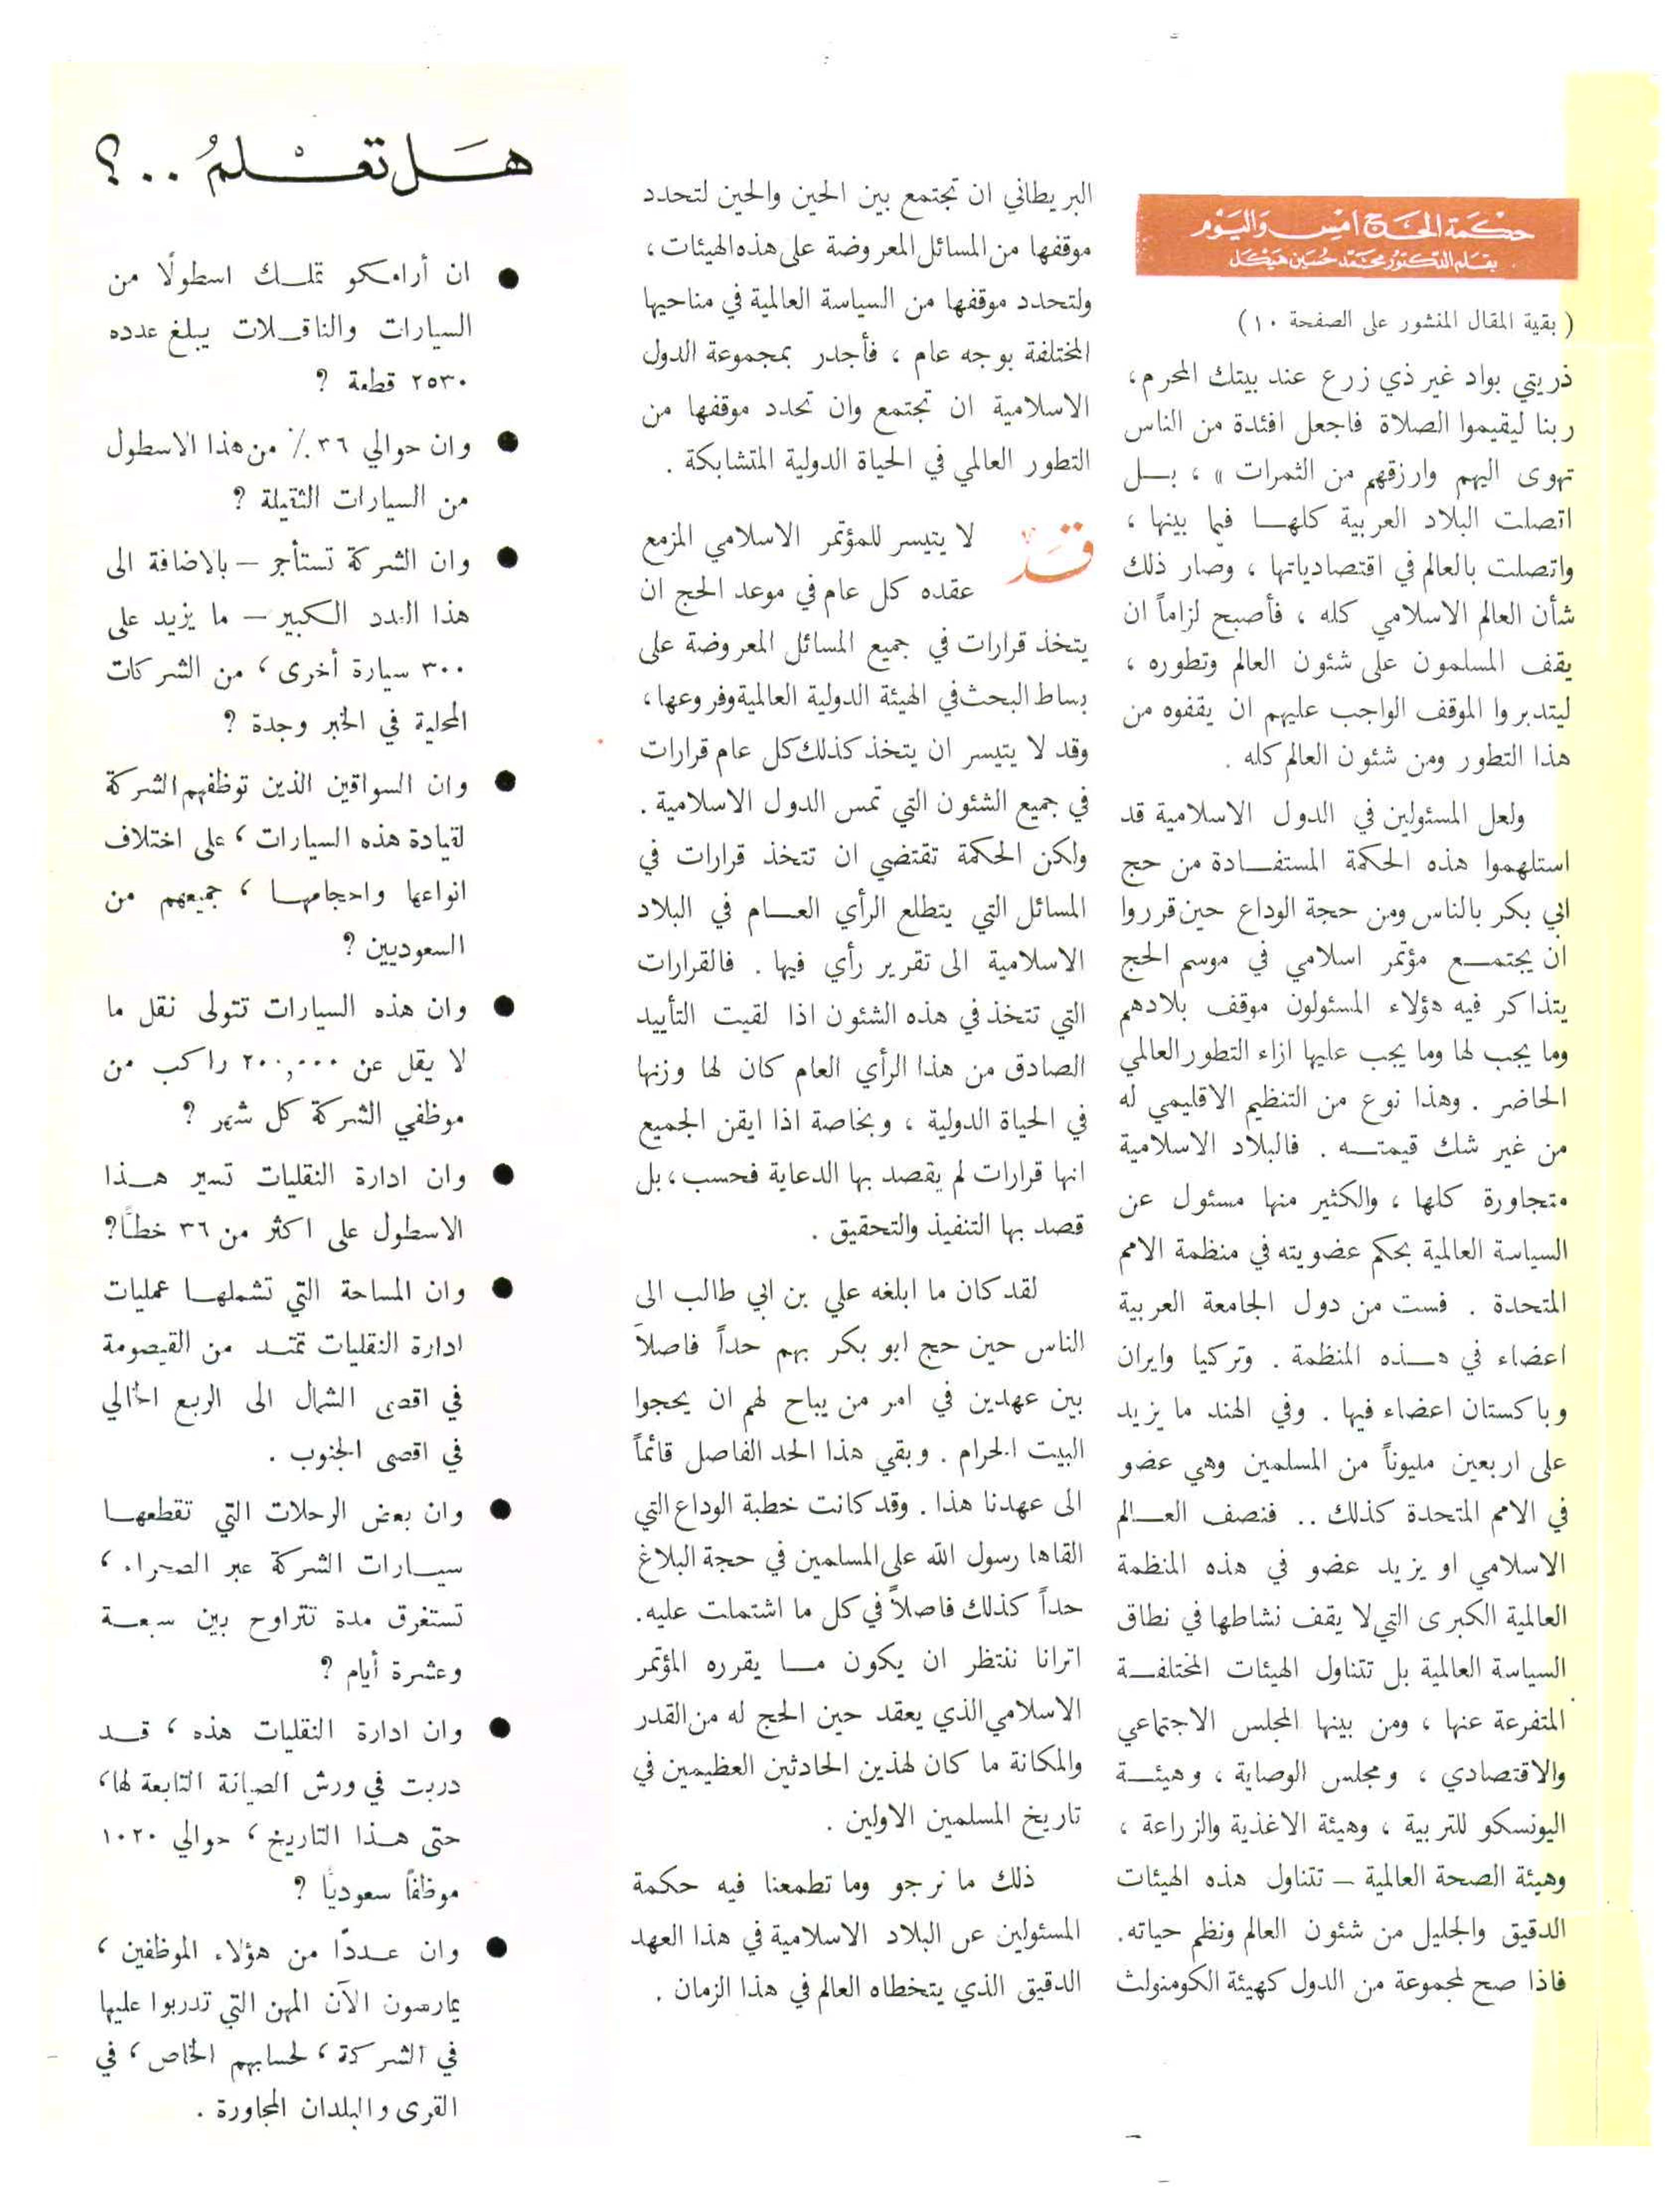 حكمة الحج امس واليوم
بقلم الدكتور محمد حسين هيكل
( بقية المقال المنشور على الصفحة ١٠ )
ذريتي بواد غير ذي زرع عند بيتك المحرم ،
ربنا ليقيموا الصلاة فاجعل افئدة من الناس
تهوى اليهم وارزقهم من الثمرات » ، بل
اتصلت البلاد العربية كلها فيما بينها ،
واتصلت بالعالم في اقتصادياتها ، وصار ذلك
شأن العالم الاسلامي كله ، فأصبح لزاماً ان
يقف المسلمون على شئون العالم وتطوره ،
ليتدبروا الموقف الواجب عليهم ان يقفوه من
هذا التطور ومن شئون العالم كله .
ولعل المسئولين في الدول الاسلامية قد
استلهموا هذه الحكمة المستفادة من حج
ابي بكر بالناس ومن حجة الوداع حين قرروا
ان يجتمع مؤتمر اسلامي في موسم الحج
يتذاكر فيه هؤلاء المسئولون موقف بلادهم
وما يجب لها وما يجب عليها ازاء التطور العالمي
الحاضر . وهذا نوع من التنظيم الاقليمي له
من غير شك قيمته . فالبلاد الاسلامية
متجاورة كلها ، والكثير منها مسئول عن
السياسة العالمية بحكم عضويته في منظمة الامم
المتحدة . فست من دول الجامعة العربية
اعضاء في هذه المنظمة . وتركيا وايران
وباكستان اعضاء فيها . وفي الهند ما يزيد
على اربعين مليوناً من المسلمين وهي عضو
في الامم المتحدة كذلك .. فنصف العالم
الاسلامي او يزيد عضو في هذه المنظمة
العالمية الكبرى التي لا يقف نشاطها في نطاق
السياسة العالمية بل تتناول الهيئات المختلفة
المتفرعة عنها ، ومن بينها المجلس الاجتماعي
والاقتصادي ، ومجلس الوصاية ، وهيئة
اليونسكو للتربية ، وهيئة الاغذية والزراعة ،
وهيئة الصحة العالمية – تتناول هذه الهيئات
الدقيق والجليل من شئون العالم ونظم حياته.
فاذا صح لمجموعة من الدول كهيئة الكومنولث
البريطاني ان تجتمع بين الحين والحين لتحدد
موقفها من المسائل المعروضة على هذه الهيئات ،
ولتحدد موقفها من السياسة العالمية في مناحيها
المختلفة بوجه عام ، فأجدر بمجموعة الدول
الاسلامية ان تجتمع وان تحدد موقفها من
التطور العالمي في الحياة الدولية المتشابكة .
قد لا يتيسر للمؤتمر الاسلامي المزمع
عقده كل عام في موعد الحج ان
يتخذ قرارات في جميع المسائل المعروضة على
بساط البحث في الهيئة الدولية العالمية وفروعها ،
وقد لا يتيسر ان يتخذ كذلك كل عام قرارات
في جميع الشئون التي تمس الدول الاسلامية .
ولكن الحكمة تقتضي ان تتخذ قرارات في
المسائل التي يتطلع الرأي العام في البلاد
الاسلامية الى تقرير رأي فيها . فالقرارات
التي تتخذ في هذه الشئون اذا لقيت التأييد
الصادق من هذا الرأي العام كان لها وزنها
في الحياة الدولية ، وبخاصة اذا ايقن الجميع
انها قرارات لم يقصد بها الدعاية فحسب ، بل
قصد بها التنفيذ والتحقيق .
لقد كان ما ابلغه علي بن ابي طالب الى
الناس حين حج ابو بكر بهم حداً فاصلاً
بين عهدين في امر من يباح لهم ان يحجوا
البيت الحرام . وبقي هذا الحد الفاصل قائماً
الى عهدنا هذا . وقد كانت خطبة الوداع التي
القاها رسول الله على المسلمين في حجة البلاغ
حداً كذلك فاصلاً في كل ما اشتملت عليه.
اترانا ننتظر ان يكون ما يقرره المؤتمر
الاسلامي الذي يعقد حين الحج له من القدر
والمكانة ما كان لهذين الحادثين العظيمين في
تاريخ المسلمين الاولين .
ذلك ما نرجو وما تطمعنا فيه حكمة
المسئولين عن البلاد الاسلامية في هذا العهد
الدقيق الذي يتخطاه العالم في هذا الزمان .
هل تعلم ..؟
● ان أرامكو تملك اسطولًا من
السيارات والناقلات يبلغ عدده
٢٥٣٠ قطعة ؟
● وان حوالي ٣٦ ٪ من هذا الاسطول
من السيارات الثقيلة ؟
● وان الشركة تستأجر – بالاضافة الى
هذا العدد الكبير – ما يزيد على
٣٠٠ سيارة أخرى ، من الشركات
المحلية في الخبر وجدة ؟
● وان السواقين الذين توظفهم الشركة
لقيادة هذه السيارات ، على اختلاف
انواعها واحجامها ، جميعهم من
السعوديين ؟
● وان هذه السيارات تتولى نقل ما
لا يقل عن ٢٠٠,٠٠٠ راكب من
موظفي الشركة كل شهر ؟
● وان ادارة النقليات تسير هذا
الاسطول على اكثر من ٣٦ خطًا؟
● وان المساحة التي تشملها عمليات
ادارة النقليات تمتد من القيصومة
في اقصى الشمال الى الربع الخالي
في اقصى الجنوب .
● وان بعض الرحلات التي تقطعها
سيارات الشركة عبر الصحراء ،
تستغرق مدة تتراوح بين سبعة
وعشرة أيام ؟
● وان ادارة النقليات هذه ، قد
دربت في ورش الصيانة التابعة لها ،
حتى هذا التاريخ ، حوالي ١٠٢٠
موظفاً سعوديًا ؟
● وان عددًا من هؤلاء الموظفين ،
يمارسون الآن المهن التي تدربوا عليها
في الشركة ، لحسابهم الخاص ، في
القرى والبلدان المجاورة .